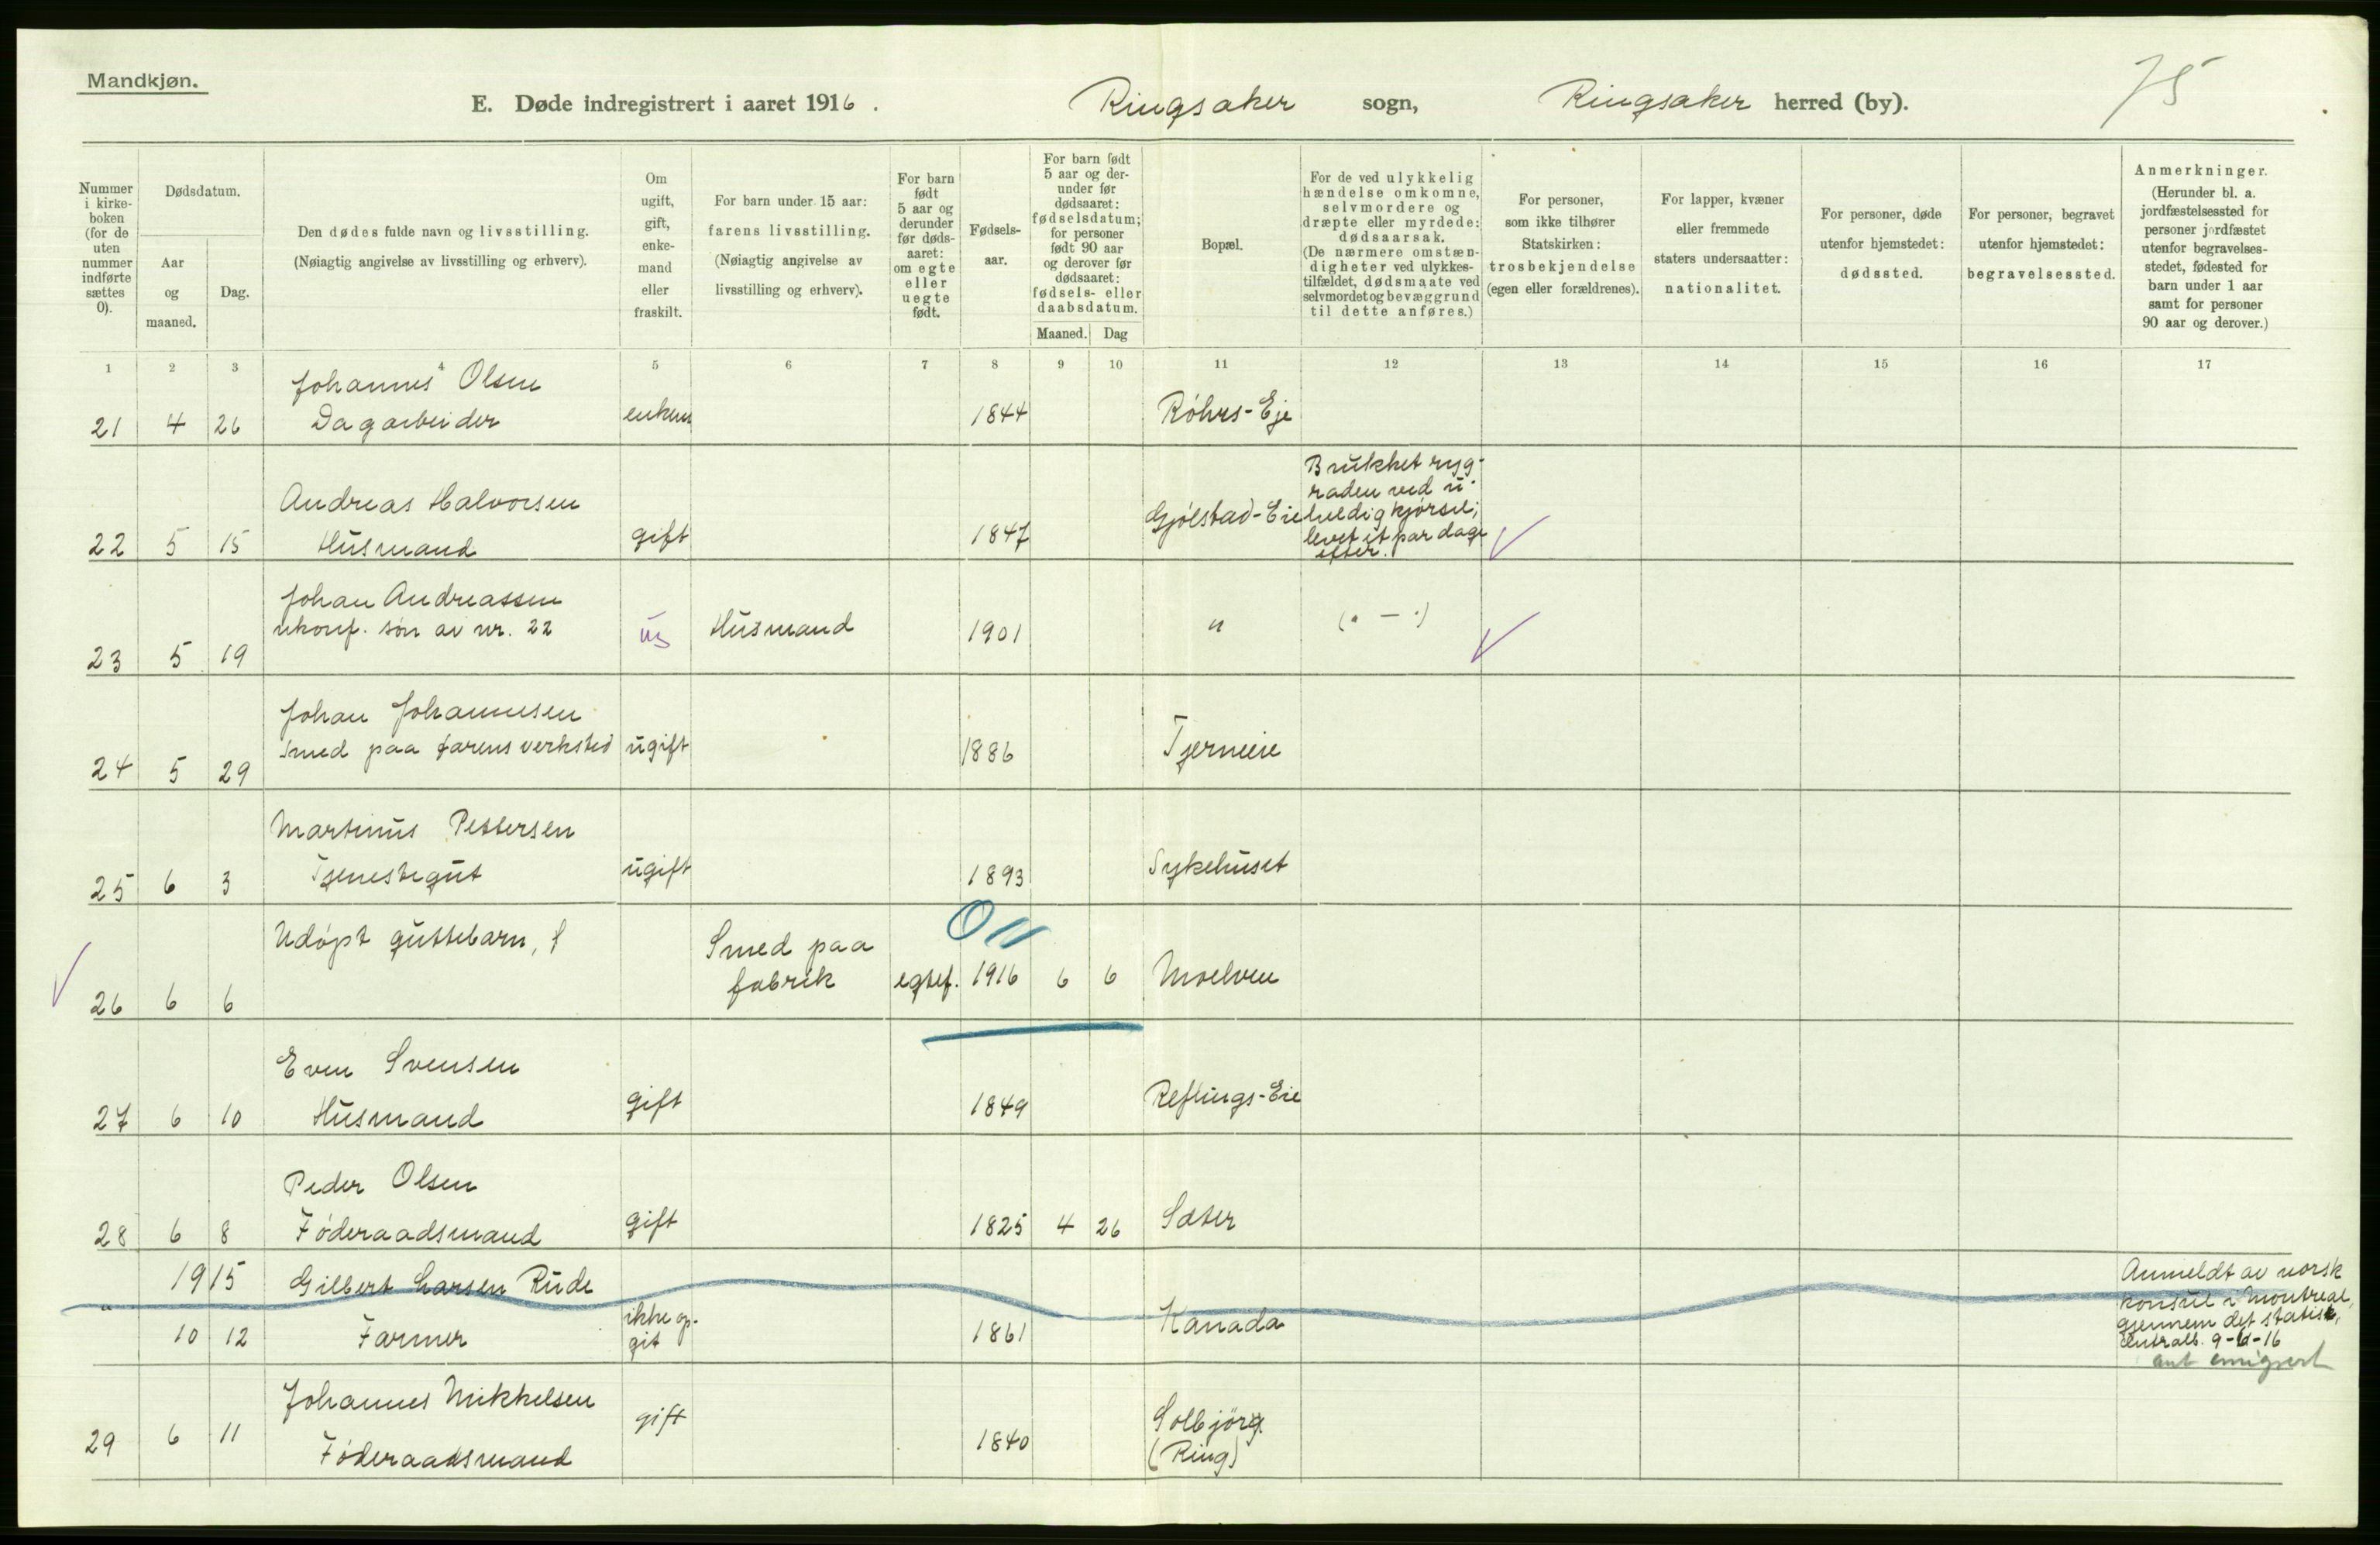 Mandkjøn.
75
E. Døde indregistrert i aaret 1916. Ringsaker sogn, Ringsaker herred (by).
Nummer i kirke-boken (for de uten nummer indførte sættes 0).
Dødsdatum.
Aar og maaned.
Dag.
Den dødes fulde navn og livsstilling.
(Nøiagtig angivelse av livsstilling og erhverv).
Om ugift, gift, enke-mand eller fraskilt.
For barn under 15 aar: farens livsstilling.
(Nøiagtig angivelse av livsstilling og erhverv).
For barn født 5 aar og derunder før døds-aaret: om egte eller uegte født.
Fødsels-aar.
For barn født 5 aar og der-under før dødsaaret: fødselsdatum; for personer født 90 aar og derover før dødsaaret: fødsels- eller daabsdatum.
Maaned. Dag
Bopæl.
For de ved ulykkelig hændelse omkomne, selvmordere og dræpte eller myrdede: dødsaarsak.
(De nærmere omstæn-digheter ved ulykkes-tilfældet, dødsmaate ved selvmordet og bevæggrund til dette anføres.)
For personer, som ikke tilhører Statskirken: trosbekjendelse (egen eller forældrenes).
For lapper, kvæner eller fremmede staters undersaatter: nationalitet.
For personer, døde utenfor hjemstedet: dødssted.
For personer, begravet utenfor hjemstedet: begravelsessted.
Anmerkninger.
(Herunder bl. a. jordfæstelsessted for personer jordfæstet utenfor begravelses-stedet, fødested for barn under 1 aar samt for personer 90 aar og derover.)
1 2 3 4 5 6 7 8 9 10 11 12 13 14 15 16 17
Johannes Olsen
21 4 26 Dagarbeider enkem 1844 Róhrs-Eje
Brukket ryg-
raden ved u-
Andreas Halvorsen
Gjólstad-Eie heldig kjórsel;
22 5 15 Husmand gift 1847 levet et par dage
efter.
Johan Andreassen
ukonf. són av nr. 22
23 5 19 ug Husmand 1901 " (. — .)
Johan Johannesen
Smed paa farens verksted
24 5 29 ugift 1886 Tjerneie
Martinus Pettersen
25 6 3 Tjenestegut ugift 1893 Sykehuset
Udópt guttebarn,
Smed paa
fabrik
26 6 6 egtef. 1916 6 6 Moelven
Even Svensen
27 6 10 Husmand gift 1849 Reflings-Eie
Peder Olsen
28 6 8 Fóderaadsmand gift 1825 4 26 Sæter
1915 Gilbert Larsen Rude
" 10 12 Farmer ikke op-
git 1861 Kanada
Anmeldt av norsk
konsul i Montreal,
gjennem det statist,
centralb. 9-6-16
ant emigrert
Johannes Mikkelsen
29 6 11 Fóderaadsmand gift 1840 Solbjörg
(Ring)